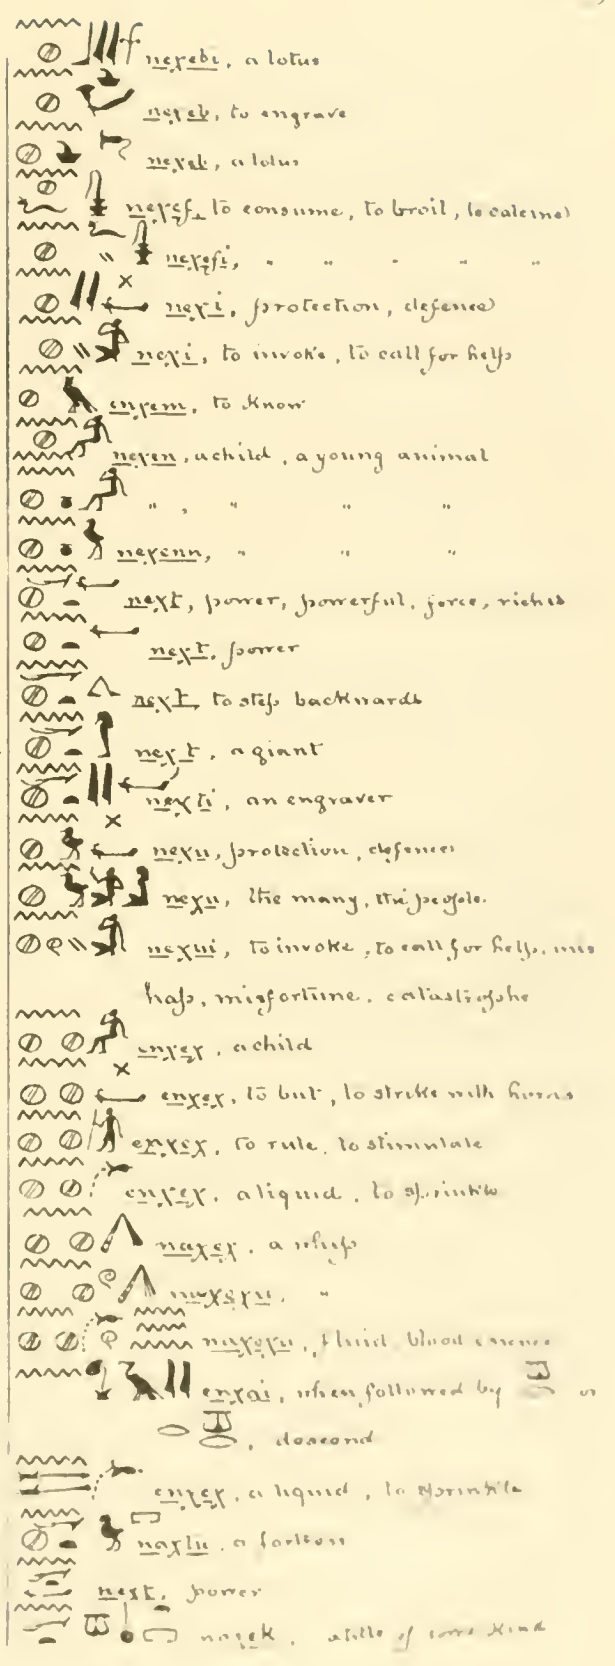 neχebi, a lotus
neχeb, to engrave
neχeb, a lotus
neχef, to consume, to broil, to calcine
neχefi, " " " " "
neχi, protection, defence
neχi, to invoke, to call for help
enχem, to know
neχen, a child, a young animal
" , " " "
neχenn, " " "
neχt, power, powerful, force, riches
neχt, power
neχt, to step backwards
neχt, a giant
neχti, an engraver
neχu, protection, defence
neχu, the many, the people.
neχui, to invoke, to call for help, mis
hap, misfortune, catastrophe
enχeχ, a child
enχeχ, to but, to strike with horns
enχeχ, to rule, to stimulate
enχeχ, a liquid, to sprinkle
naχeχ, a whip
naχeχu, "
naχeχu, fluid, blood essence
enχai, when followed by or
, descend
enχeχ, a liquid, to sprinkle
naχtu, a
neχt, power
a title of some kind